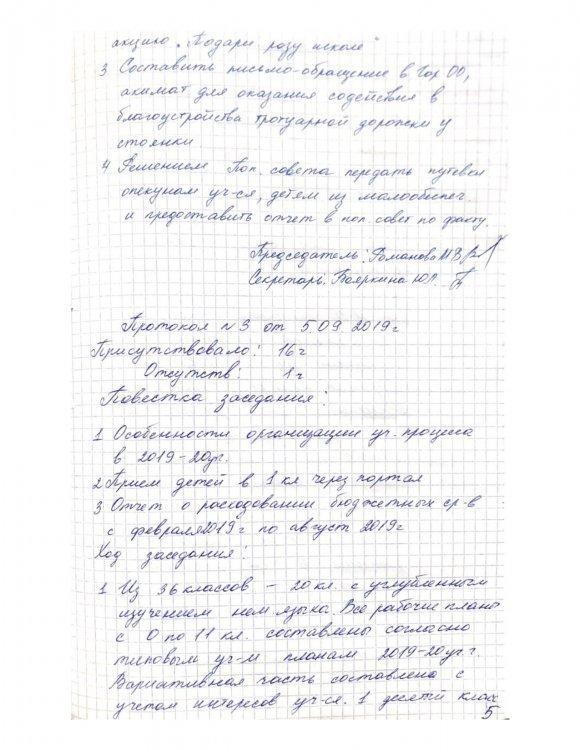 акцию „Подари розу школе"
3 Составить письмо-обращение в Гор ОО,
акимат для оказания содействия в
благоустройства тротуарной дорожки у
стоянки.
4 Решением Поп. совета передать путевки
опекунам уч-ся, детям из малообеспеч.
и предоставить отчет в поп. совет по факту.
Председатель: Романова М В
Секретарь: Бояркина Ю.Л.
Протокол №3 от 5.09 2019г
Присутствовало: 16 ч
Отсутств: 1 ч
Повестка заседания:
1 Особенности организации уч. процесса
в 2019-20уг.
2 Прием детей в 1 кл через портал
3 Отчет о расходовании бюджетных ср-в
с февраля 2019г по август 2019г
Ход заседания:
1 Из 36 классов – 20 кл. с углубленным
изучением нем языка. Все рабочие планы
с 0 по 11 кл. составлены согласно
типовым уч-м планам 2019-20уч. г.
Вариативная часть составлена с
учетом интересов уч-ся. 1 десятый класс
5